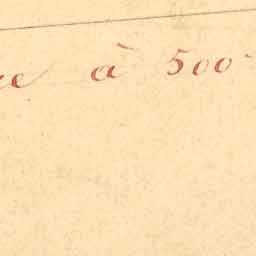 à 500